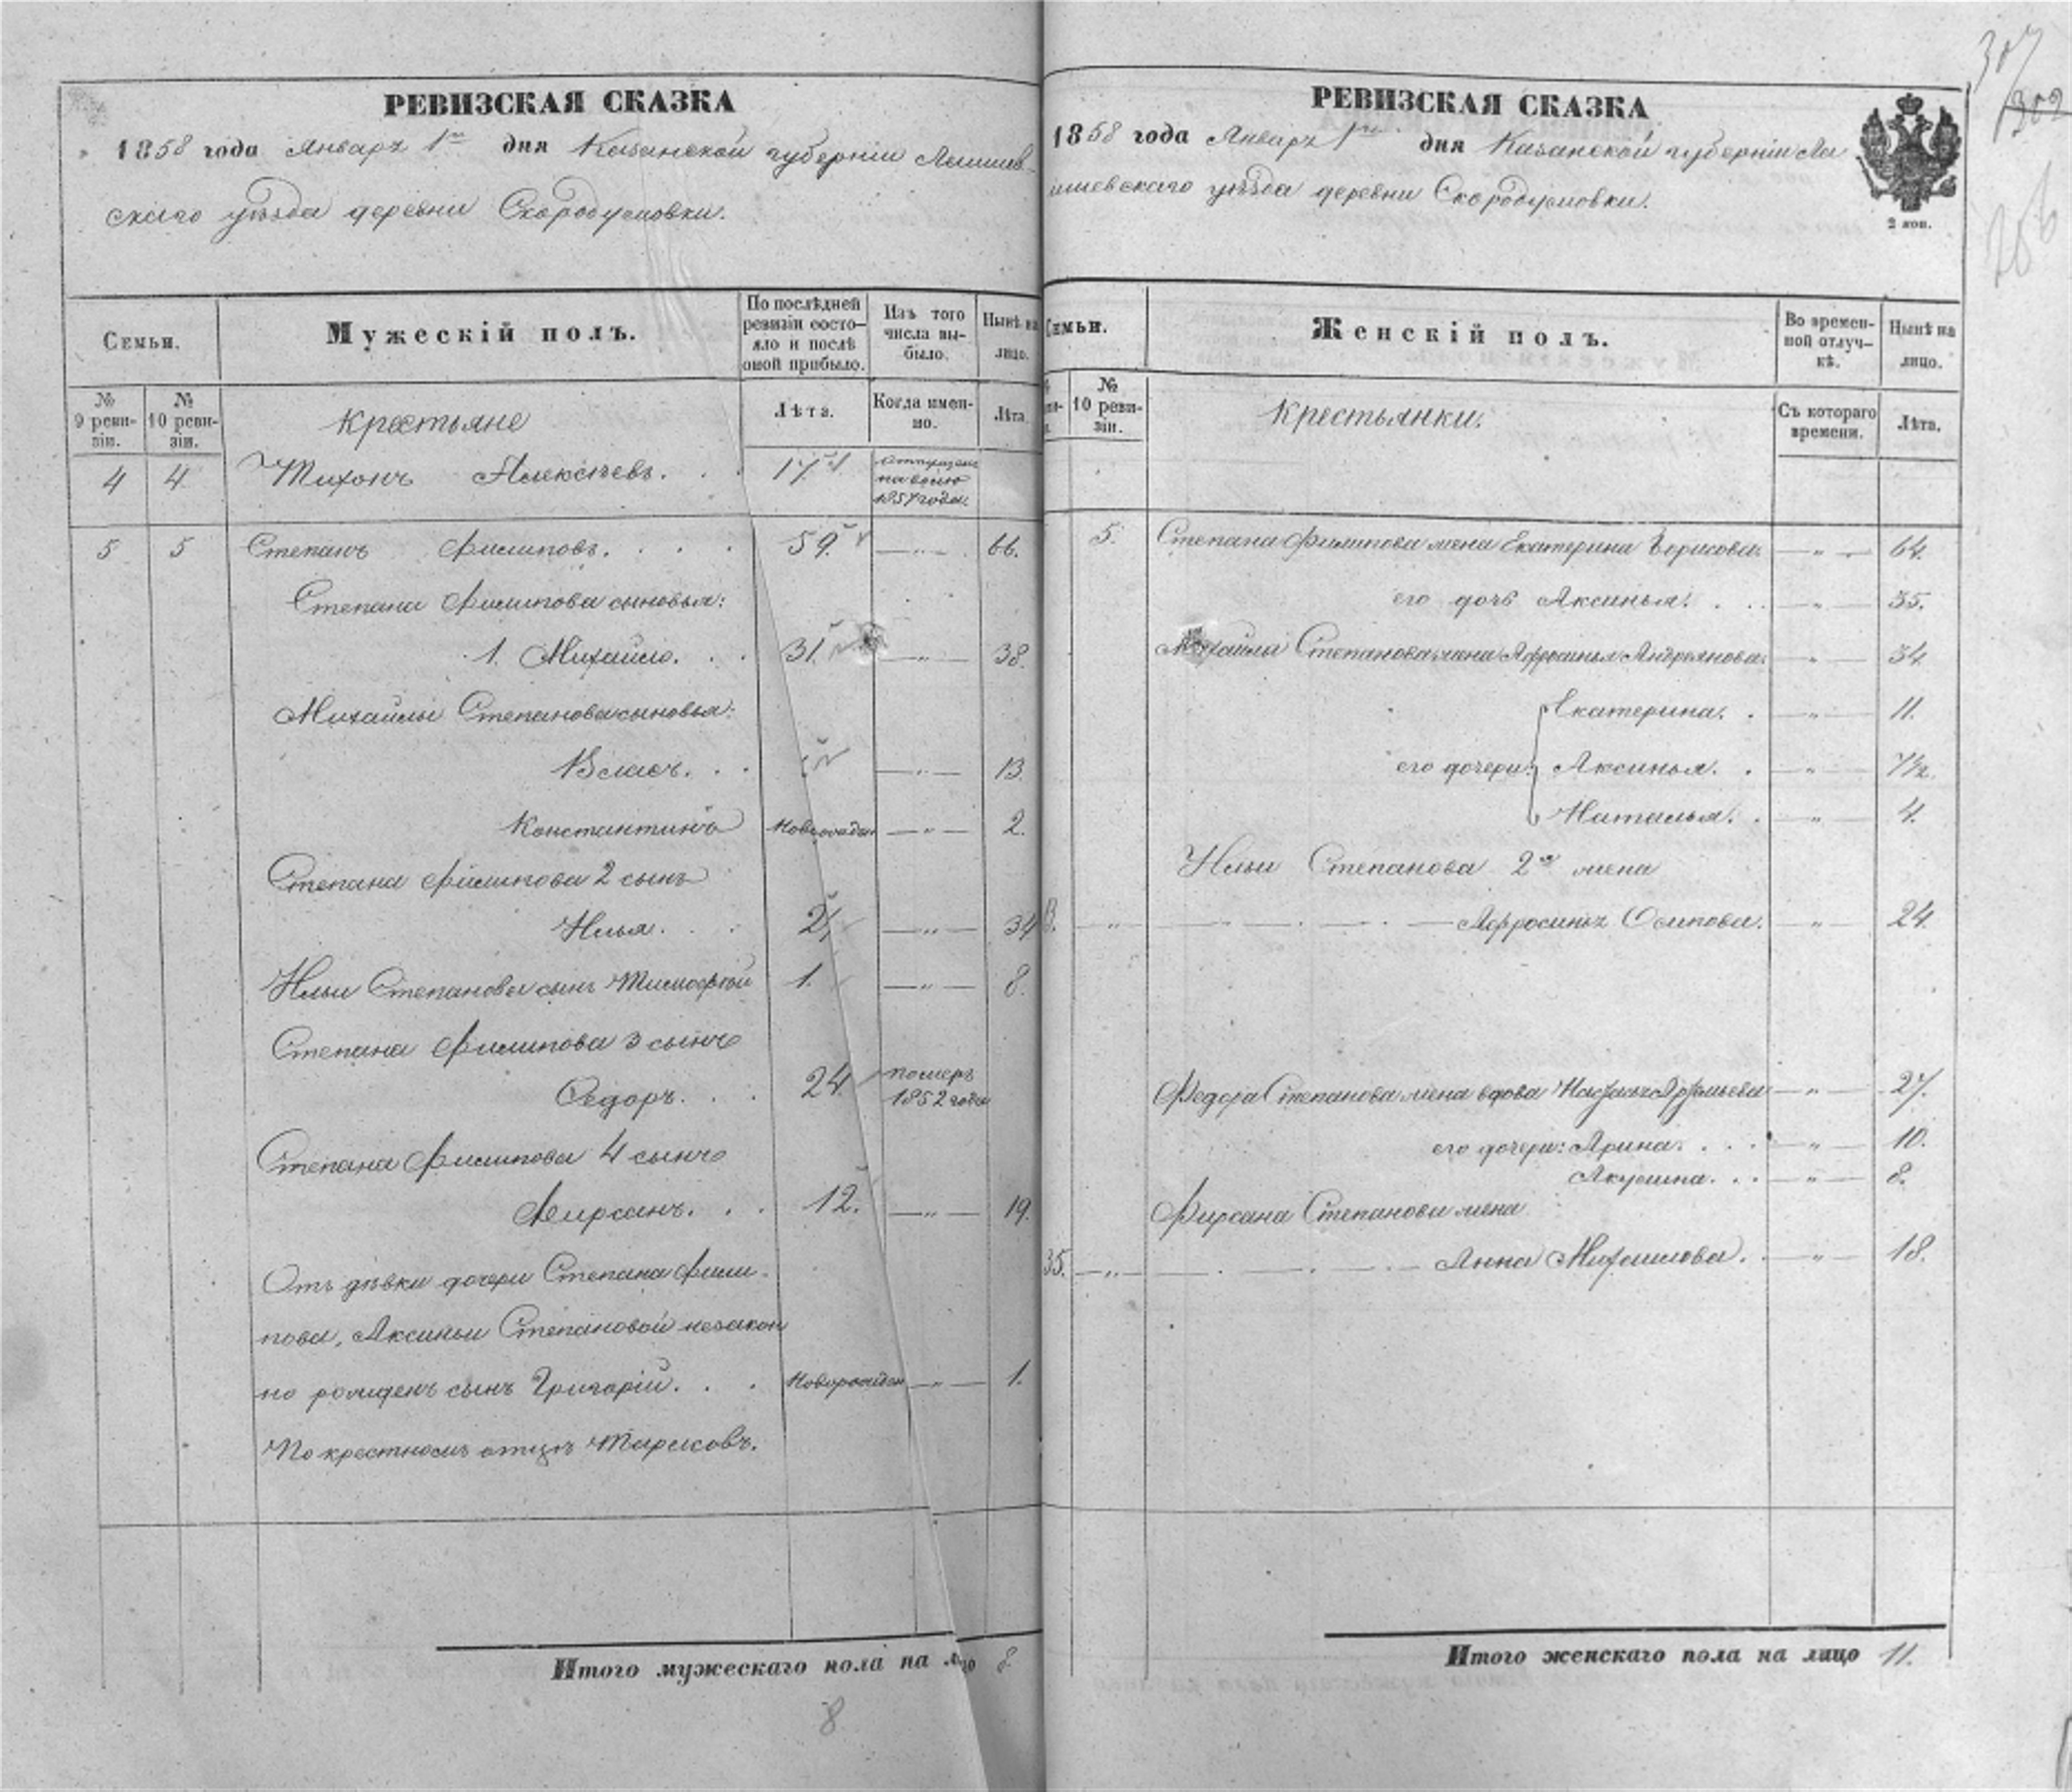 РЕВИЗСКАЯ СКАЗКА
1858 года Января 1го дня Казанской губернiи Лаишев-
скаго уѣзда деревни Скородумовки.
Семьи.
Мужескiй полъ.
По послѣдней ревизiи состо-
яло и послѣ оной прибыло.
Изъ того числа вы-
было.
Нынѣ на лицо.
№ 9 реви-
зiи.
№ 10 реви-
зiи.
Крестьяне
Лѣта.
Когда имен-
но.
Лѣта.
4 4 Тихонъ Алексѣевъ. 17. на волю 1857 года
5 5 Степанъ Филиповъ. 59. — „ — 66.
Степана Филипова сыновья:
1. Михайло. 31. — „ — 38.
Михайлы Степанова сыновья:
Власъ. — „ — 13.
Константинъ Новорожден — „ — 2.
Степана Филипова 2 сынъ
Илья. — „ — 34
Ильи Степанова сынъ Тимофѣй 1. — „ — 8.
Степана Филипова 3 сынъ
Федоръ. 24. померъ 1852 года
Степана Филипова 4 сынъ
Фирсанъ. 12. — „ — 19.
Отъ дѣвки дочери Степана Фили-
пова, Аксиньи Степановой незакон
но рожденъ сынъ Григорiй. Новорожден — „ — 1.
По крестномъ отцѣ
Итого мужескаго пола на лицо 8.
8
РЕВИЗСКАЯ СКАЗКА
1858 года Января 1го дня Казанской губернiи Ла
ишевскаго уѣзда деревни Скородумовки.
2 коп.
307
302
Семьи.
Женскiй полъ.
Во времен-
ной отлуч-
кѣ.
Нынѣ на лицо.
№ 10 реви-
зiи.
Крестьянки.
Съ котораго времени.
Лѣта.
5. Степана Филипова жена Екатерина Борисова — „ — 64.
его дочь Аксинья. — „ — 35.
Михайлы Степанова жена Афросинья Андреянова — „ — 34.
Екатерина. — „ — 11.
его дочери: Аксинья. — „ — 7½.
Наталья. — „ — 4.
Ильи Степанова 2я жена
— „ — Афросинья Осипова. — „ — 24.
Федора Степанова жена вдова — „ — 27.
его дочери: Арина. — „ — 10.
Акулина. — „ — 8.
Фирсана Степанова жена
35. — „ — Анна Михайлова. — „ — 18.
Итого женскаго пола на лицо 11.